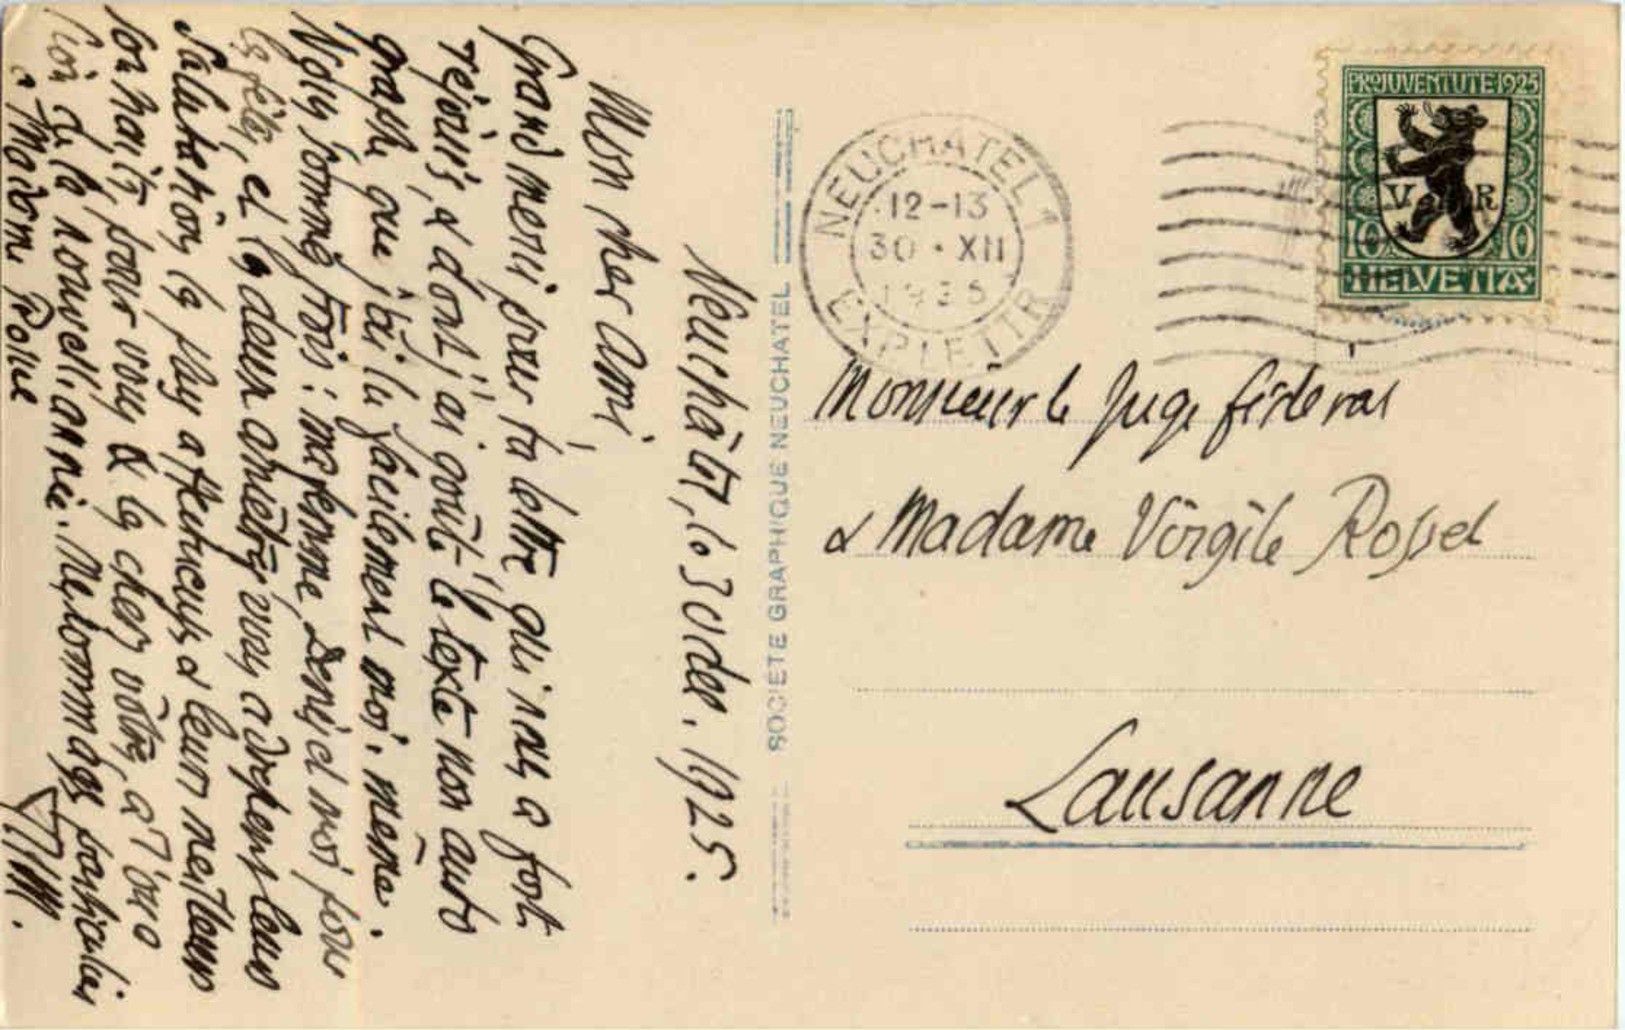 Neuchâtel, le 30 déc. 1925.
Mon cher ami,
Grand merci pour ta lettre qui nous a fort
réjouis, & dont j'ai goûté le texte non auto
graphe que j'ai lu facilement moi-même.
Nous sommes trois: ma femme, et moi pour
les fêtes, et les deux vous adressent leurs
salutations les plus affectueuses & leurs meilleurs
souhaits pour vous & les chers vôtres, à l'oc
cion de la nouvelle année. Mes hommages particuliers
à Madame
SOCIÉTÉ GRAPHIQUE NEUCHATEL
NEUCHATEL 1
12-13
30 · XII
1925
EXP. LETTR.
PRO JUVENTUTE 1925
V R
10 10
HELVETIA
Monsieur le Juge fédéral
& Madame Virgile Rossel
Lausanne